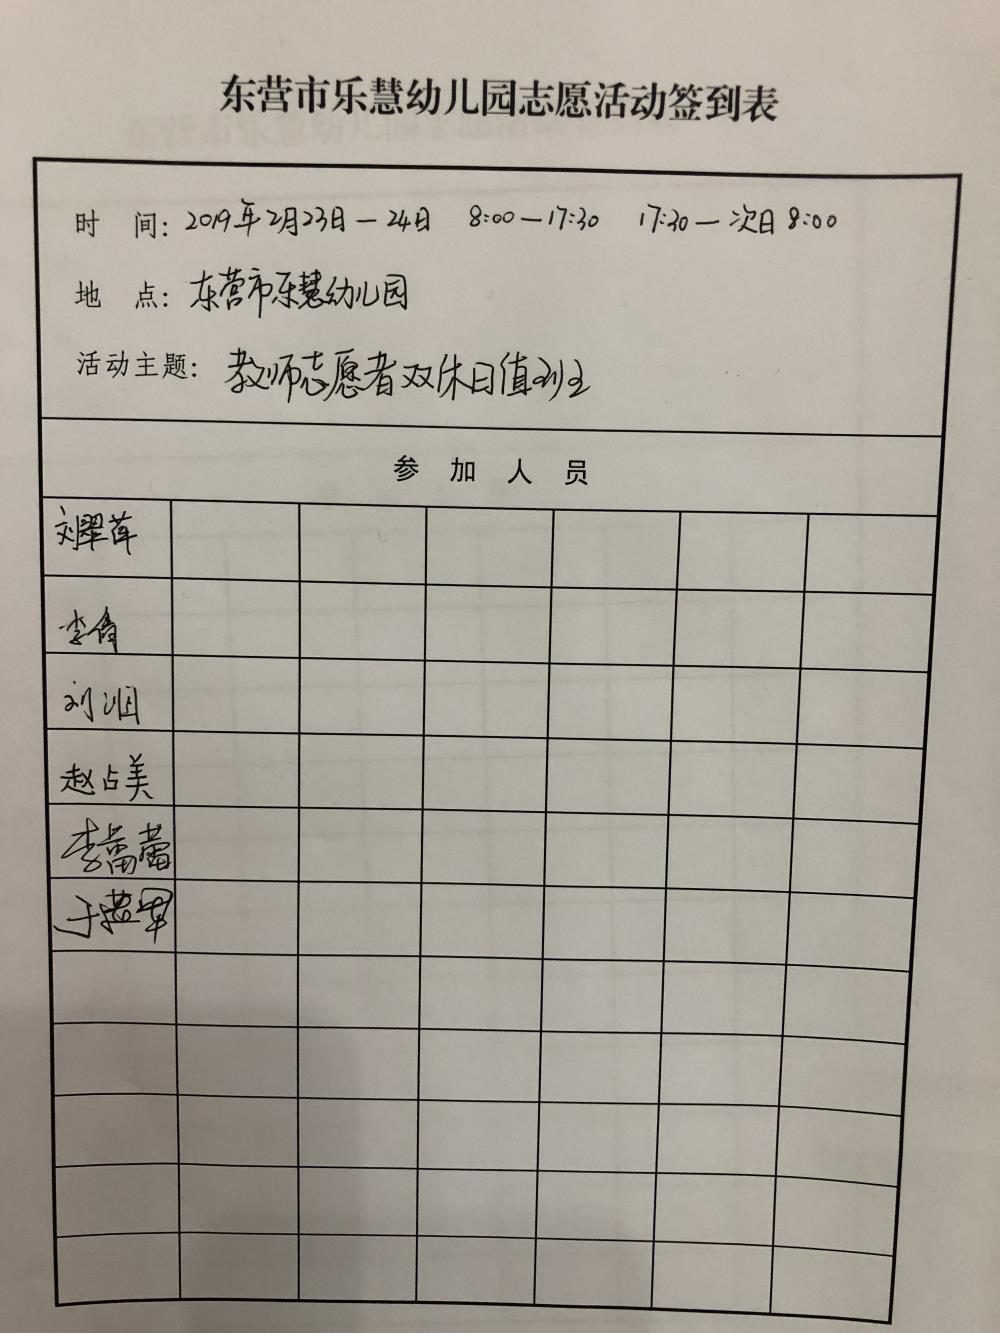 东营市乐慧幼儿园志愿活动签到表
时 间: 2019年2月23日—24日 8:00—17:30 17:30—次日8:00
地 点: 东营市乐慧幼儿园
活动主题: 教师志愿者双休日值班
参 加 人 员
刘翠萍
李倩
刘泪
赵占美
李蕾蕾
于燕军